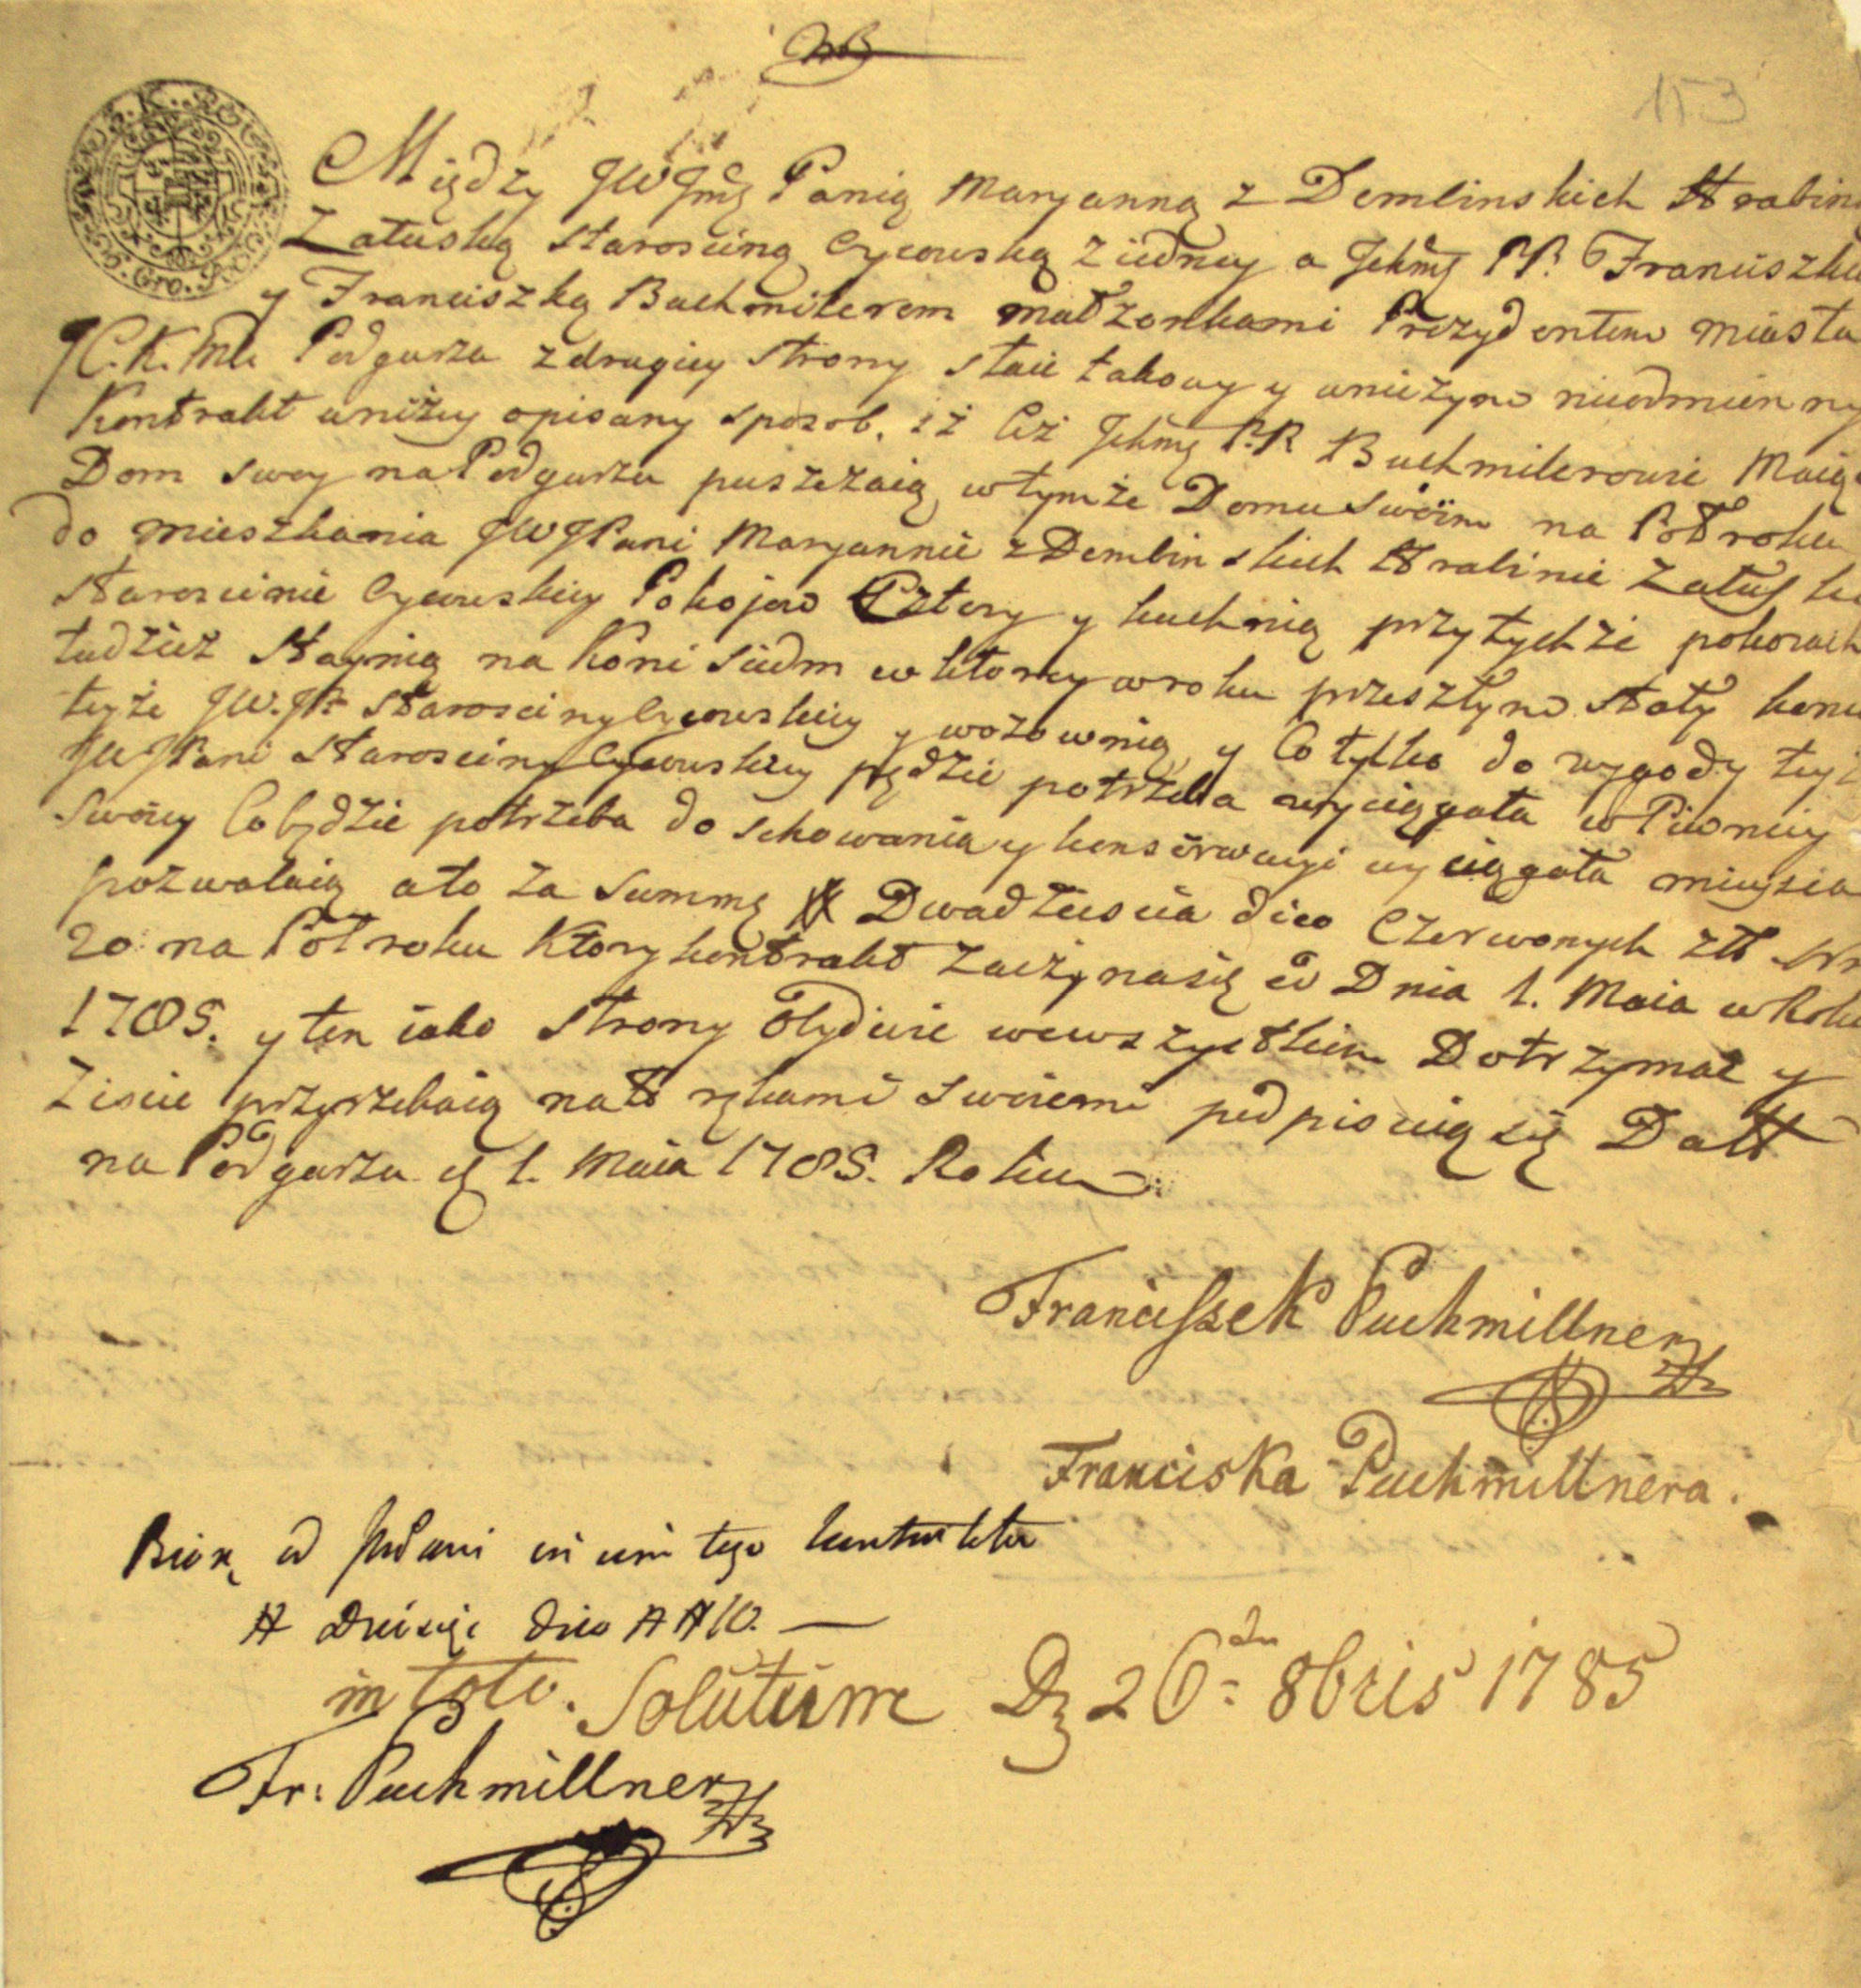 NB
153
Między JWJmć Panią Maryanną z Demlinskich Hrabiną
Załuską Starosciną Cycowską z iedney a Jchmć PP. Franciszkiem
y Franciszką Buchmilerem małżonkami Prezydentem Miasta
JC.K.Mci Podgurza z drugiey Strony staie takowy y wnieżym nieodmienny
Kontrakt w niżey opisany sposob, iż Ciż Jchmć PP. Buchmilerowie Maiąc
Dom swoy na Podgurzu puszczaią w tymże Domu swoim na Pół roku
do mieszkania JWJPani Maryannie z Demlinskich Hrabinie Załuskiey
Staroscinie Cycowskiey Pokojow Cztery y kuchnią przy tychże pokoiach
tudzież Staynią na koni siedm w ktorey w roku przeszłym stały konie
teyże JW.JP. Starosciny Cycowskiey y wozownią y Co tylko do wygody teyże
JWJPani Starosciny Cycowskiey będzie potrzeba wyciągała w Piwnicy
Swoiey Co będzie potrzeba do schowania y konserwacyi wyciągała mieysca
pozwalaią a to za Summę # Dwadziescia dico Czerwonych Złł Nro
20 na Poł roku Ktory kontrakt zaczyna się od Dnia 1. Maia w Roku
1785. y ten iako Strony Obydwie we wszystkim Dotrzymać y
Ziscić przyrzekaią na to rękami swoiemi podpisuią się Datt
na Podgurzu d 1. Maia 1785. Roku
Franciszek Puchmillner
Franciska Puchmillnera.
Biorę od JWPani in vim tego kontraktu
# Dziesięć dico ## 10.
in toto. Solutum D 26dn 8bris 1785
Fr: Puchmillner